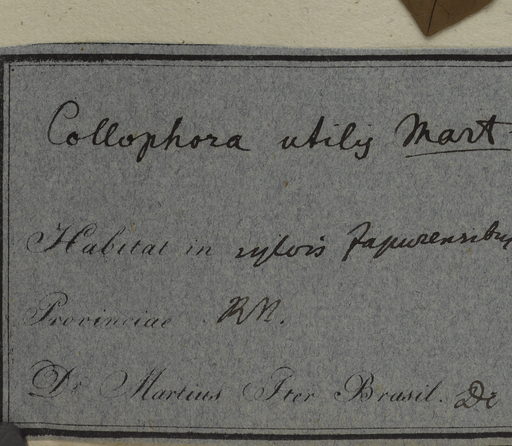 Collophora utilis Mart.
Habitat in sylvis Japurensibus
Provinciae R. N.
Dr Martius Iter Brasil. De